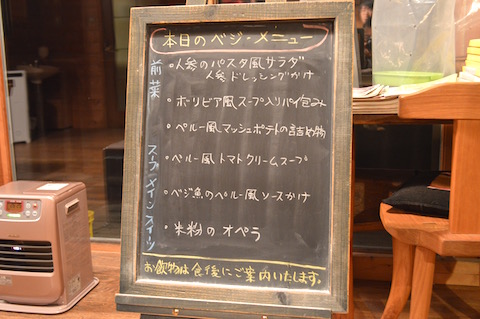 本日のベジ・メニュー
前菜
・人参のパスタ風サラダ
人参ドレッシングかけ
・ボーリビア風スープ入りパイ包み
・ペルー風マッシュポテトの詰め物
スープ
・ペルー風トマトクリームスープ
メイン
・ベジ魚のペルー風ソースかけ
スイーツ
・米粉のオペラ
お飲物は食後にご案内いたします。